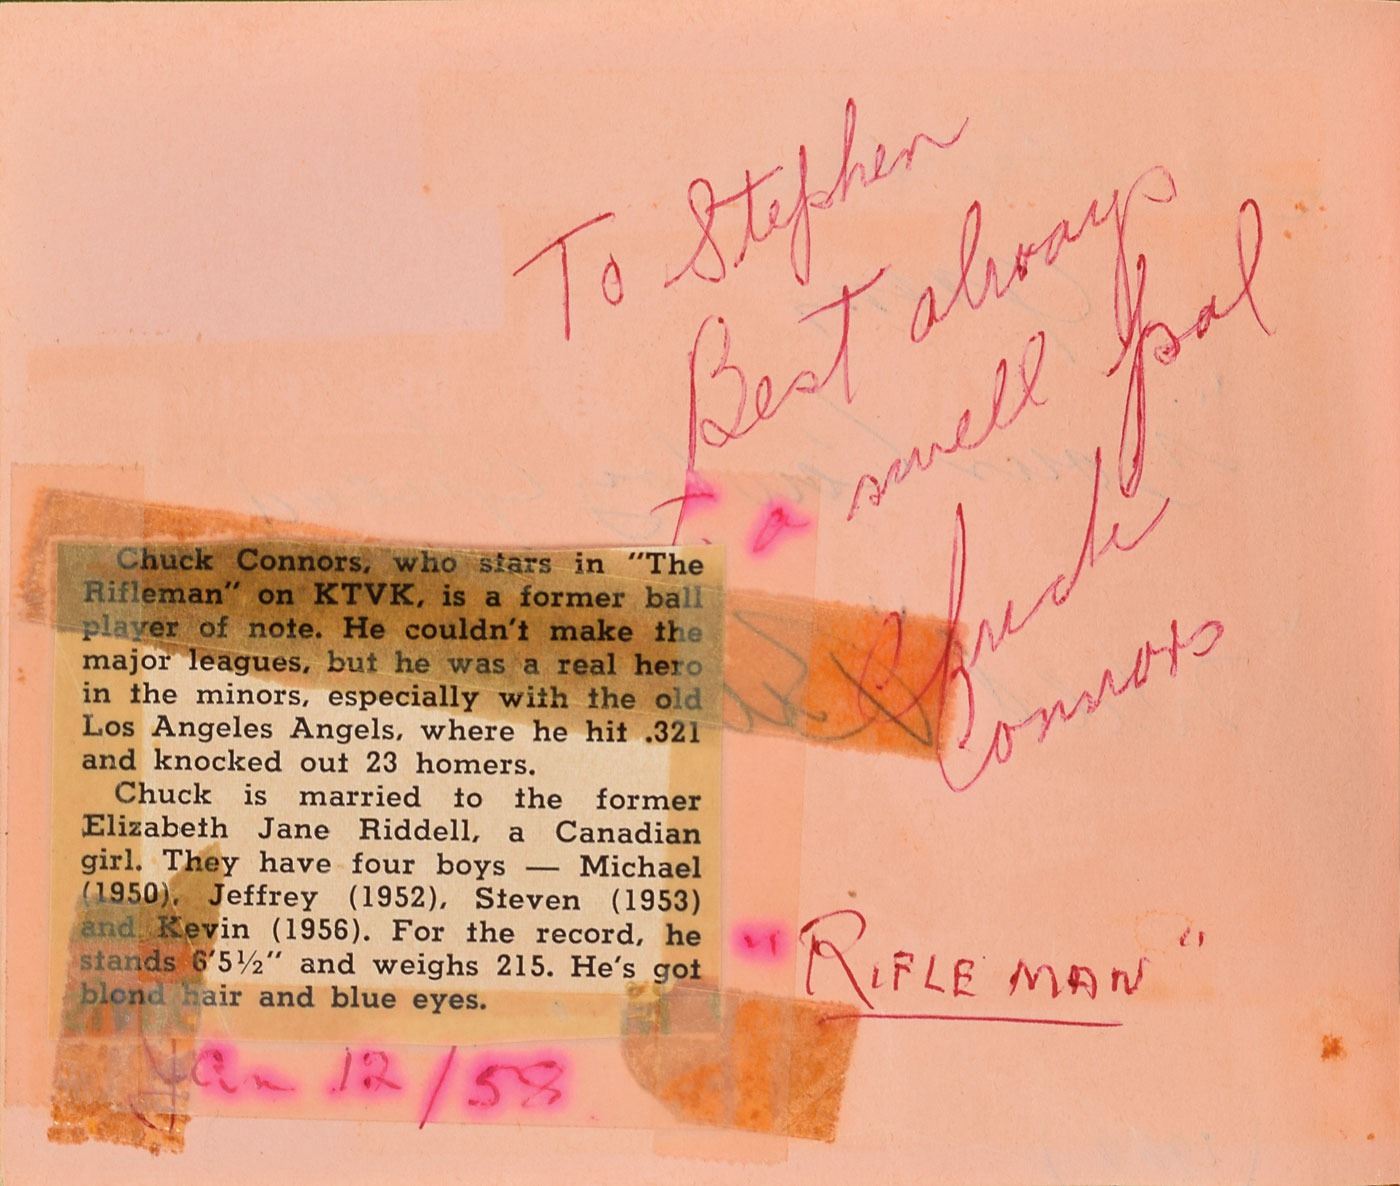 To Stephen
Best always
to a swell pal
Chuck
Connors
Chuck Connors, who stars in "The
Rifleman" on KTVK, is a former ball
player of note. He couldn't make the
major leagues, but he was a real hero
in the minors, especially with the old
Los Angeles Angels, where he hit .321
and knocked out 23 homers.
Chuck is married to the former
Elizabeth Jane Riddell, a Canadian
girl. They have four boys — Michael
(1950), Jeffrey (1952), Steven (1953)
and Kevin (1956). For the record, he
stands 6'5½" and weighs 215. He's got
blond hair and blue eyes.
"RIFLE MAN"
Jan 12/58